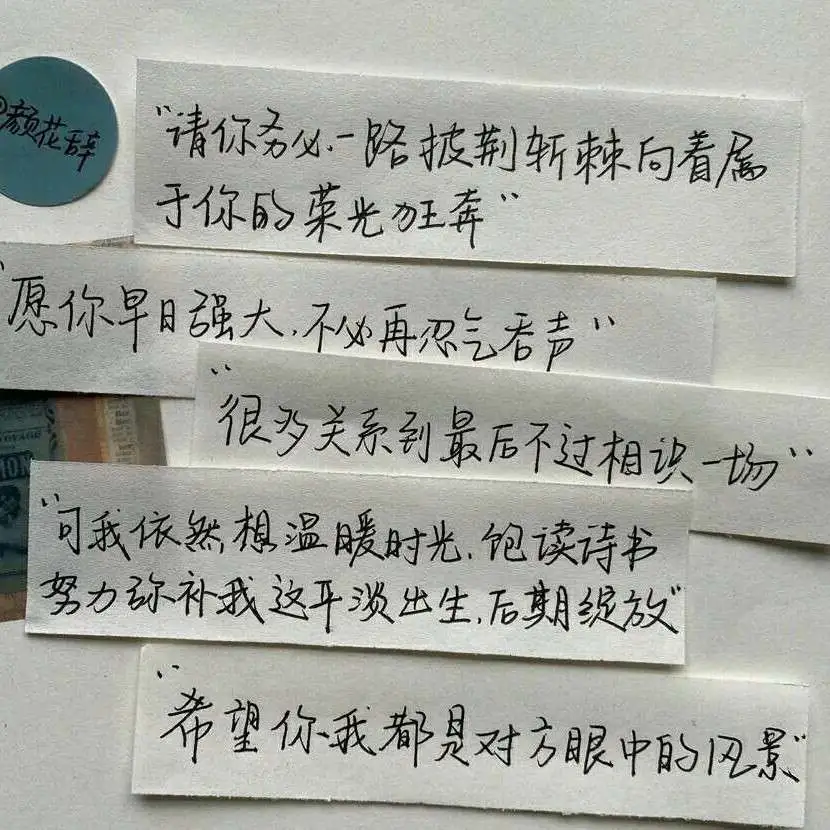 @颜花辞
"请你务必一路披荆斩棘向着属
于你的荣光狂奔"
"愿你早日强大,不必再忍气吞声"
"很多关系到最后不过相识一场"
"可我依然想温暖时光,饱读诗书
努力弥补我这平淡出生,后期绽放"
"希望你我都是对方眼中的风景"
VOYAGE